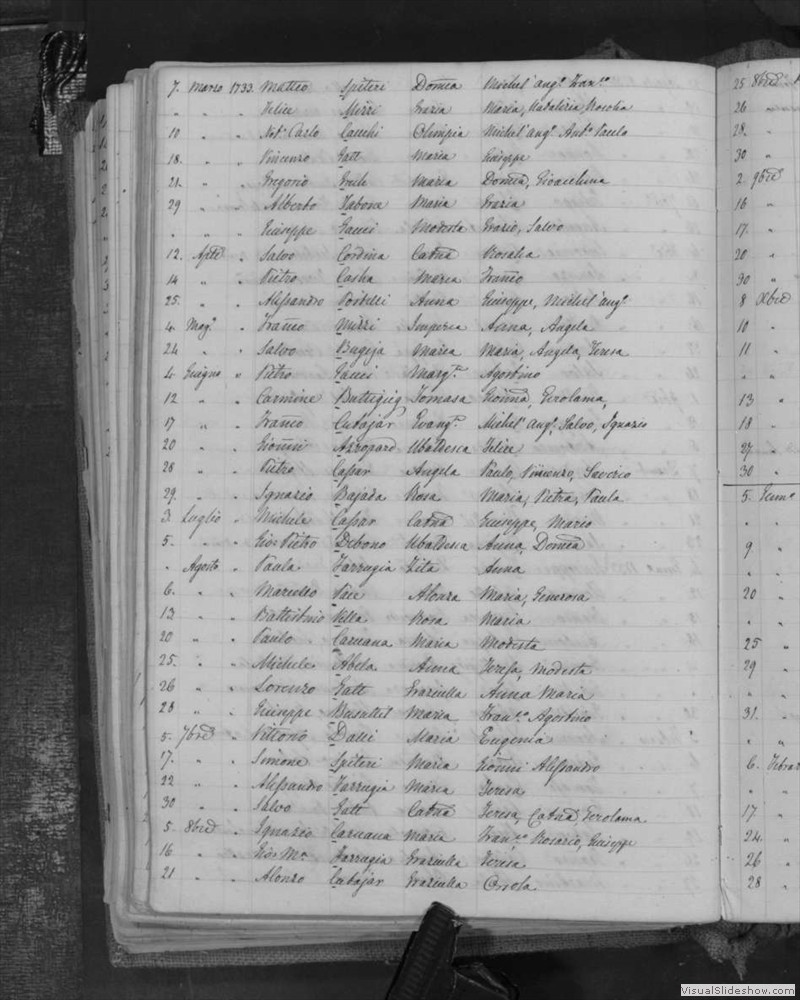 7. Marzo 1733. Matteo Spiteri Domca Michel'ang.o Fran.co
" " " Felice Mizzi Grazia Maria, Madalena Rosolea
10 " " Not.o Carlo Cauchi Olimpia Michel'ang.o Ant.o Paulo
18. " " Vincenzo Gatt Maria Giuseppe
21. " " Gregorio Grech Maria Domca, Gioachina
29 " " Alberto Zabone Maria Grazia
" " " Giuseppe Gauci Modesta Grazio, Salvo
12. Aple " Salvo Cordina Catna Rosalea
14 " " Pietro Casha Maria Franco
25. " " Alessandro Portelli Anna Giuseppe, Michel'ang.o
4. Mag.o " Franco Mizzi Imperia Anna, Angela
24 " " Salvo Bugeja Maria Maria, Angela, Teresa
4. Giugno " Pietro Gauci Marg.ta Agostino
12 " " Carmine Buttigieg Tomasa Gionna, Gerolama,
17 " " Franco Cutajar Evang.ta Michel'ang.o, Salvo, Ignazio
20 " " Gionni Azzopard Ubaldesca Felice
28 " " Pietro Cassar Angela Paulo, Vincenzo, Saverio
29. " " Ignazio Bajada Rosa Maria, Pietra, Paula
3. Luglio " Michele Cassar Catna Giuseppe, Mario
5. " " Gio: Pietro Debono Ubaldesca Anna, Domca
" Agosto " Paula Farrugia Zita Anna
6. " " Marcello Pace Alonza Maria, Generosa
13 " " Battistino Vella Rosa Maria
20 " " Paulo Caruana Maria Modesta
25. " " Michele Abela Anna Teresa, Modesta
26 " " Lorenzo Gatt Graziulla Anna Maria
28 " " Giuseppe Busuttil Maria Fran.co Agostino
5. 7bre " Vittorio Dallı Maria Eugenia
17. " " Simone Spiteri Maria Gionni Alessandro
22 " " Alessandro Farrugia Maria Teresa
30 " " Salvo Gatt Catna Teresa, Catna Gerolama
5. 8bre " Ignazio Caruana Maria Fran.co Rosario, Giuseppe
16 " " Gio: M.a Farrugia Graziulla Teresa
21 " " Alonzo Cutajar Graziulla Orsola
25 8bre
26 "
28. "
30 "
2. 9bre
16 "
17. "
20 "
30 "
8 Xbre
10 "
11 "
" "
13 "
18 "
27. "
30 "
5. Genn.o
" "
9 "
" "
20 "
" "
25 "
29 "
" "
31. "
" "
6. Febrar
" "
17. "
24. "
26 "
28 "
VisualSlideshow.com